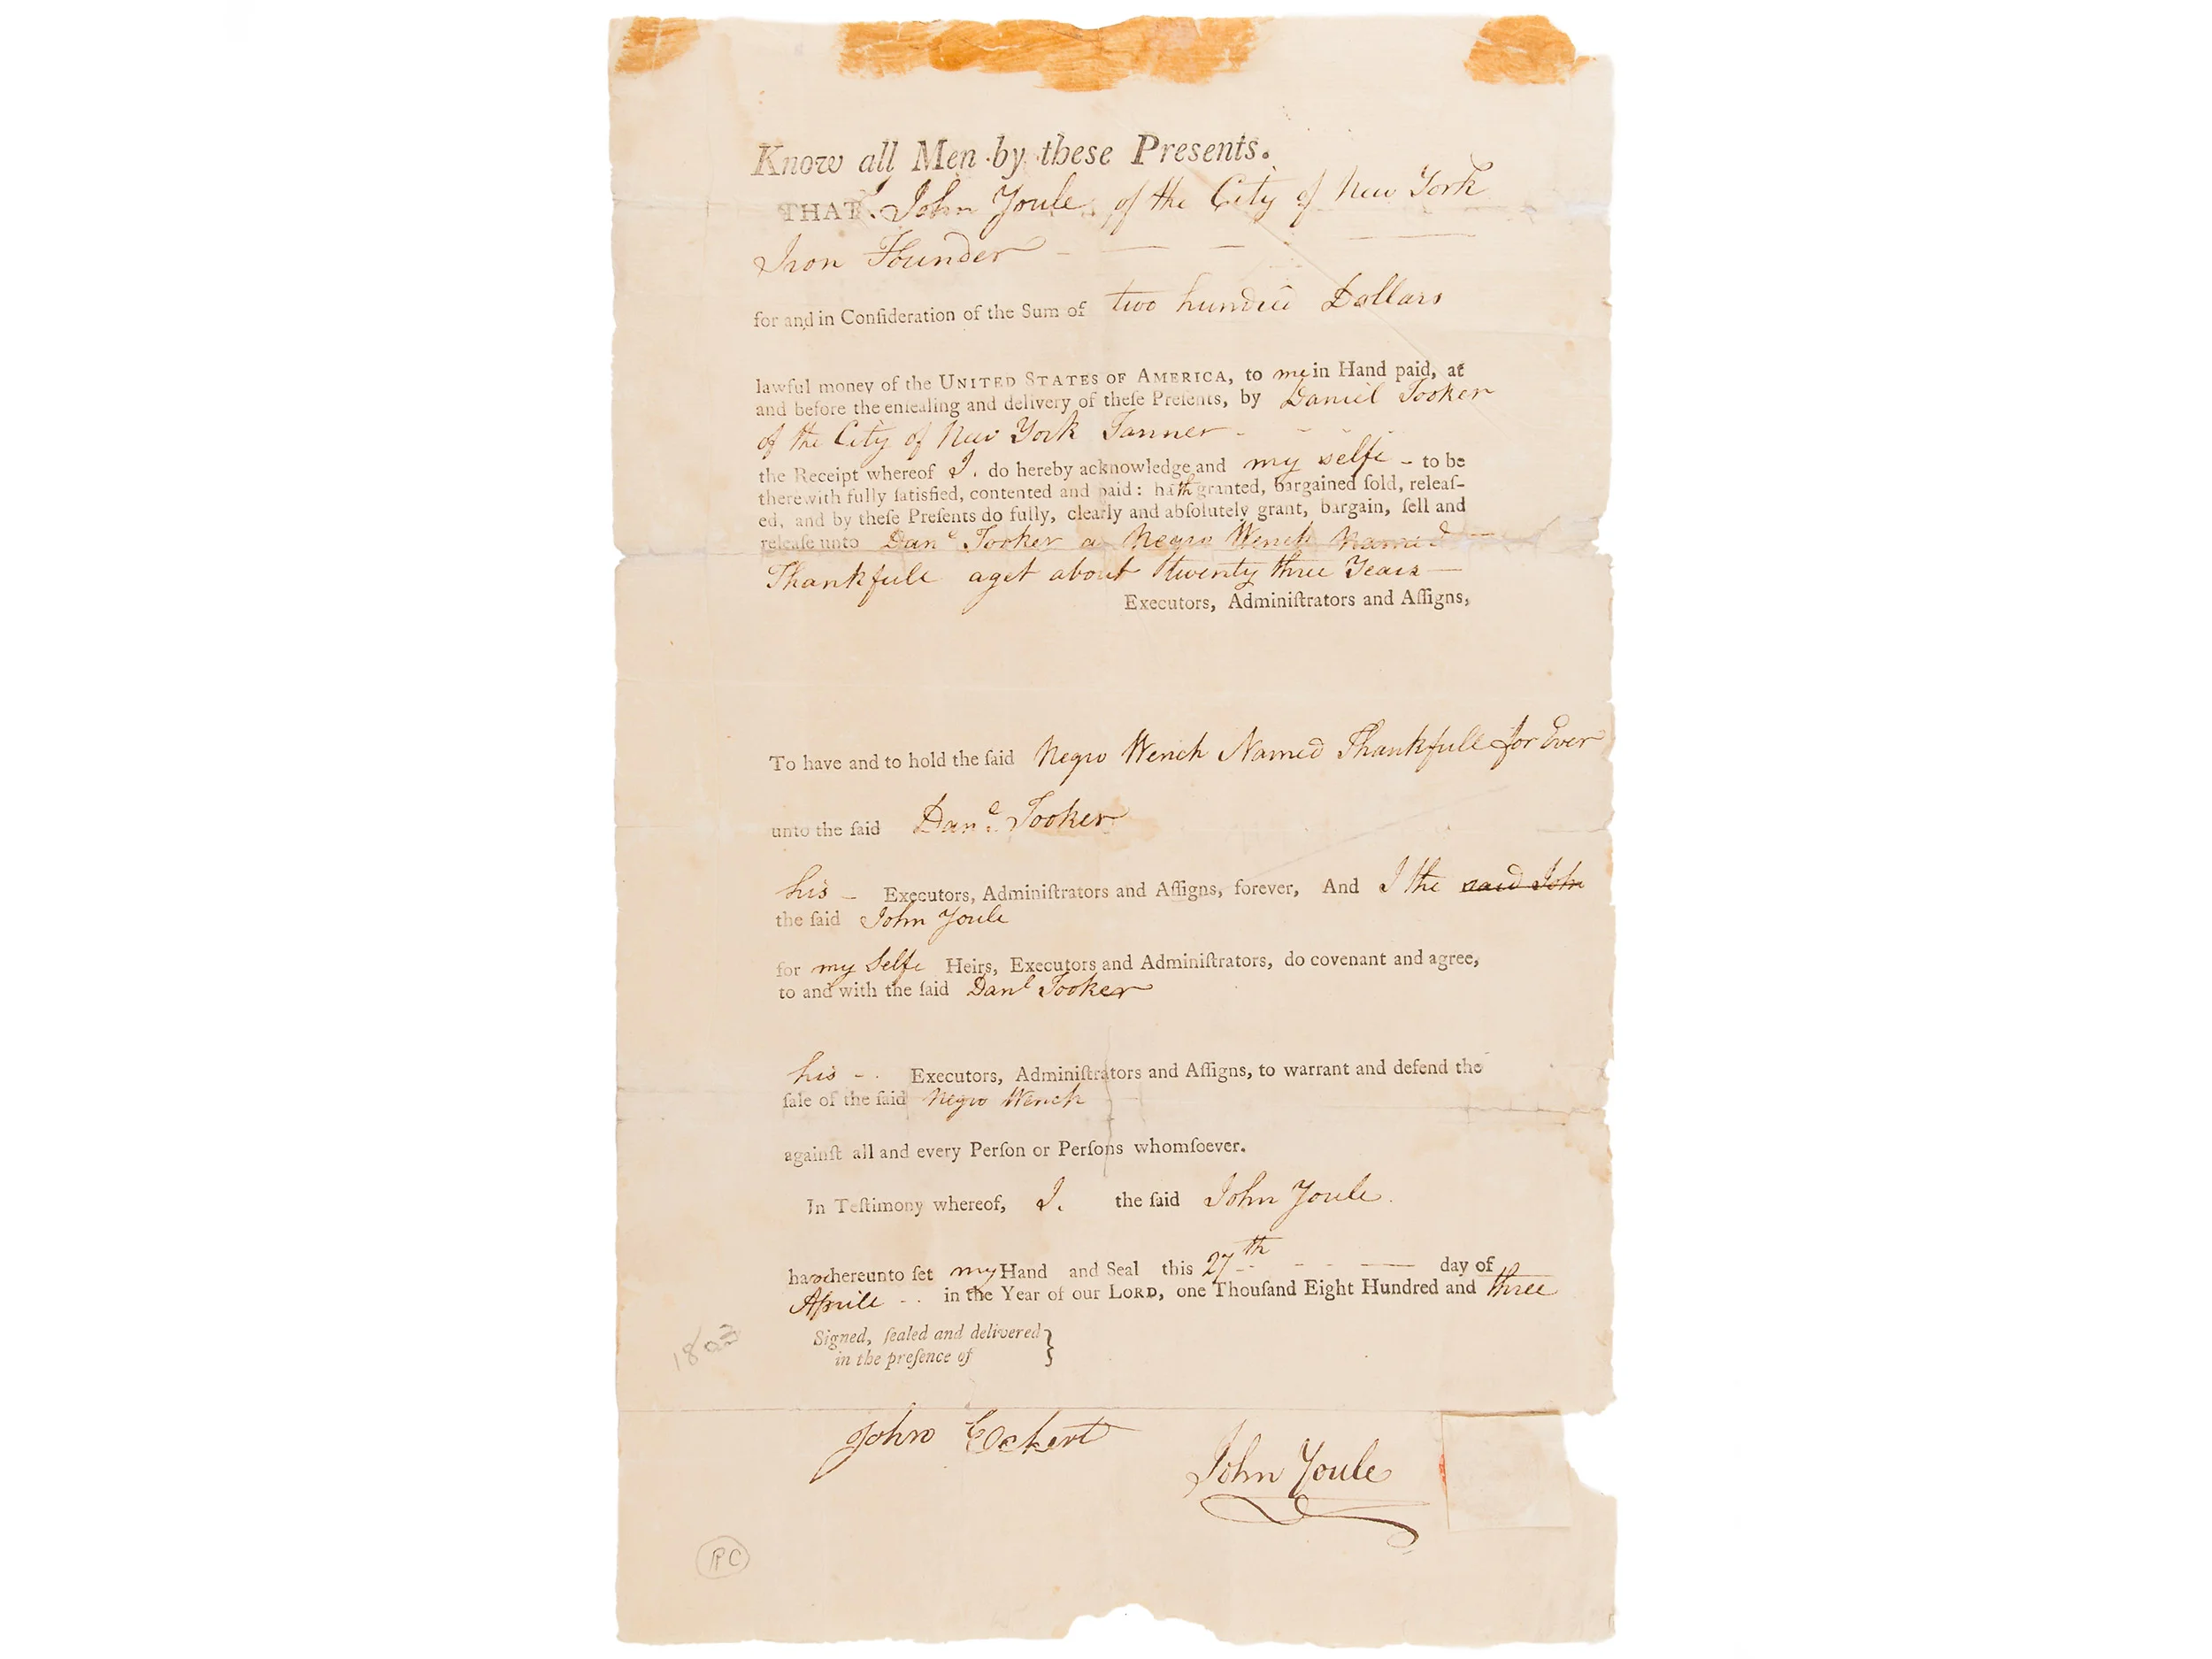 Know all Men by these Presents.
THAT I John Youle of the City of New York
Iron Founder
for and in Conſideration of the Sum of two hundred Dollars
lawful money of the UNITED STATES OF AMERICA, to me in Hand paid, at
and before the enſealing and delivery of theſe Preſents, by Daniel Tooker
of the City of New York Tanner
the Receipt whereof I. do hereby acknowledge and my selfe - to be
therewith fully ſatisfied, contented and paid: hath granted, bargained ſold, releaſ-
ed, and by theſe Preſents do fully, clearly and abſolutely grant, bargain, ſell and
releaſe unto Danl Tooker a Negro Wench Named
Thankfull aget about twenty three Years
Executors, Adminiſtrators and Aſſigns,
To have and to hold the ſaid Negro Wench Named Thankfull for Ever
unto the ſaid Danl Tooker
his - Executors, Adminiſtrators and Aſſigns, forever, And I the said John
the ſaid John Youle
for my Selfe Heirs, Executors and Adminiſtrators, do covenant and agree,
to and with the ſaid Danl Tooker
his - Executors, Adminiſtrators and Aſſigns, to warrant and defend the
ſale of the ſaid Negro Wench
againſt all and every Perſon or Perſons whomſoever.
In Teſtimony whereof, I. the ſaid John Youle.
have hereunto ſet my Hand and Seal this 27th day of
Aprill in the Year of our LORD, one Thouſand Eight Hundred and three
1803
Signed, ſealed and delivered }
in the preſence of
John Eckert
John Youle
RC